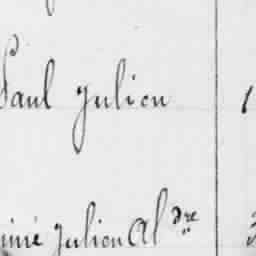 Paul Julien 1
imé Julien Aldre 3